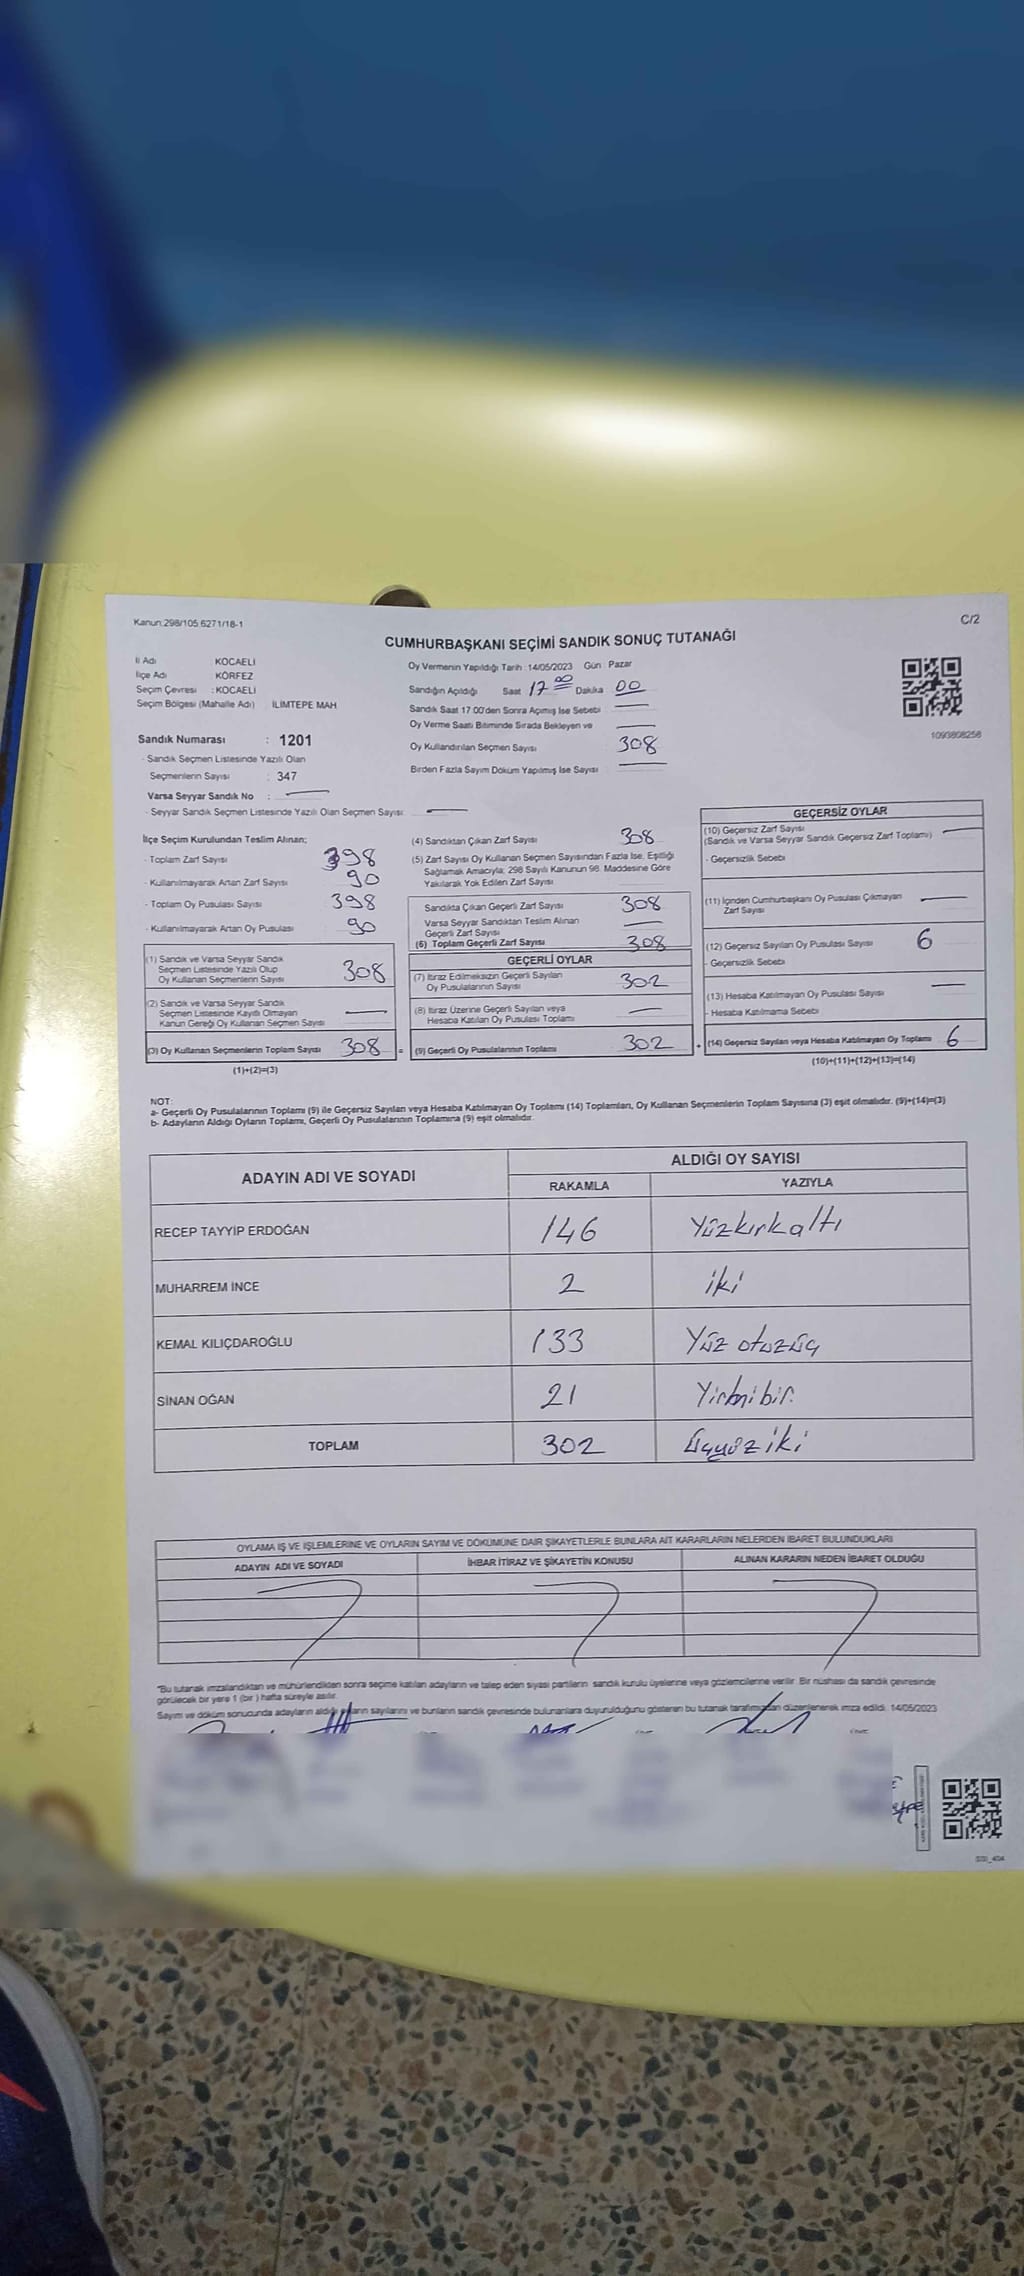 Kanun:298/105 6271/18-1
C/2
CUMHURBAŞKANI SEÇİMİ SANDIK SONUÇ TUTANAĞI
İl Adı KOCAELİ
İlçe Adı KÖRFEZ
Seçim Çevresi : KOCAELİ
Seçim Bölgesi (Mahalle Adı) İLİMTEPE MAH
Oy Vermenin Yapıldığı Tarih : 14/05/2023 Gün : Pazar
Sandığın Açıldığı Saat 17 00 Dakika 00
Sandık Saat 17:00'den Sonra Açımış İse Sebebi —
Oy Verme Saati Bitiminde Sırada Bekleyen ve —
Oy Kullandırılan Seçmen Sayısı 308
Birden Fazla Sayım Döküm Yapılmış İse Sayısı —
1093808258
Sandık Numarası : 1201
- Sandık Seçmen Listesinde Yazılı Olan
Seçmenlerin Sayısı : 347
Varsa Seyyar Sandık No : —
- Seyyar Sandık Seçmen Listesinde Yazılı Olan Seçmen Sayısı: —
İlçe Seçim Kurulundan Teslim Alınan;
- Toplam Zarf Sayısı 398
- Kullanılmayarak Artan Zarf Sayısı 90
- Toplam Oy Pusulası Sayısı 398
- Kullanılmayarak Artan Oy Pusulası 90
(1) Sandık ve Varsa Seyyar Sandık
Seçmen Listesinde Yazılı Olup
Oy Kullanan Seçmenlerin Sayısı 308
(2) Sandık ve Varsa Seyyar Sandık
Seçmen Listesinde Kayıtlı Olmayan
Kanun Gereği Oy Kullanan Seçmen Sayısı —
(3) Oy Kullanan Seçmenlerin Toplam Sayısı 308 =
(1)+(2)=(3)
(4) Sandıktan Çıkan Zarf Sayısı 308
(5) Zarf Sayısı Oy Kullanan Seçmen Sayısından Fazla İse, Eşitliği
Sağlamak Amacıyla; 298 Sayılı Kanunun 98. Maddesine Göre
Yakılarak Yok Edilen Zarf Sayısı
Sandıkta Çıkan Geçerli Zarf Sayısı 308
Varsa Seyyar Sandıktan Teslim Alınan
Geçerli Zarf Sayısı —
(6) Toplam Geçerli Zarf Sayısı 308
GEÇERLİ OYLAR
(7) İtiraz Edilmeksizin Geçerli Sayılan
Oy Pusulalarının Sayısı 302
(8) İtiraz Üzerine Geçerli Sayılan veya
Hesaba Katılan Oy Pusulası Toplamı —
(9) Geçerli Oy Pusulalarının Toplamı 302 +
GEÇERSİZ OYLAR
(10) Geçersiz Zarf Sayısı
(Sandık ve Varsa Seyyar Sandık Geçersiz Zarf Toplamı) —
- Geçersizlik Sebebi
(11) İçinden Cumhurbaşkanı Oy Pusulası Çıkmayan
Zarf Sayısı —
(12) Geçersiz Sayılan Oy Pusulası Sayısı 6
- Geçersizlik Sebebi
(13) Hesaba Katılmayan Oy Pusulası Sayısı —
- Hesaba Katılmama Sebebi
(14) Geçersiz Sayılan veya Hesaba Katılmayan Oy Toplamı 6
(10)+(11)+(12)+(13)=(14)
NOT:
a- Geçerli Oy Pusulalarının Toplamı (9) ile Geçersiz Sayılan veya Hesaba Katılmayan Oy Toplamı (14) Toplamları, Oy Kullanan Seçmenlerin Toplam Sayısına (3) eşit olmalıdır. (9)+(14)=(3)
b- Adayların Aldığı Oyların Toplamı, Geçerli Oy Pusulalarının Toplamına (9) eşit olmalıdır.
ADAYIN ADI VE SOYADI ALDIĞI OY SAYISI
RAKAMLA YAZIYLA
RECEP TAYYİP ERDOĞAN 146 Yüzkırkaltı
MUHARREM İNCE 2 iki
KEMAL KILIÇDAROĞLU 133 Yüz otuzüç
SİNAN OĞAN 21 Yirmibir.
TOPLAM 302 Üçyüz iki
OYLAMA İŞ VE İŞLEMLERİNE VE OYLARIN SAYIM VE DÖKÜMÜNE DAİR ŞİKAYETLERLE BUNLARA AİT KARARLARIN NELERDEN İBARET BULUNDUKLARI
ADAYIN ADI VE SOYADI İHBAR İTİRAZ VE ŞİKAYETİN KONUSU ALINAN KARARIN NEDEN İBARET OLDUĞU
"Bu tutanak imzalandıktan ve mühürlendikten sonra seçime katılan adayların ve talep eden siyasi partilerin sandık kurulu üyelerine veya gözlemcilerine verilir. Bir nüshası da sandık çevresinde
görülecek bir yere 1 (bir ) hafta süreyle asılır.
Sayım ve döküm sonucunda adayların aldığı oyların sayılarını ve bunların sandık çevresinde bulunanlara duyurulduğunu gösteren bu tutanak tarafımızdan düzenlenerek imza edildi. 14/05/2023